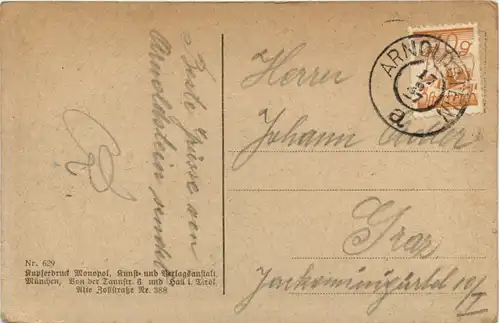 Beste Grüsse von
Arnoldstein sendet
Nr. 629
Kupferdruck Monopol, Kunst- und Verlagsanstalt,
München, Von der Tannstr. 6 und Hall i. Tirol,
Alte Zollstraße Nr. 388
ARNOLDSTEIN
a
Herrn
Johann
Graz
Jackominigürtel